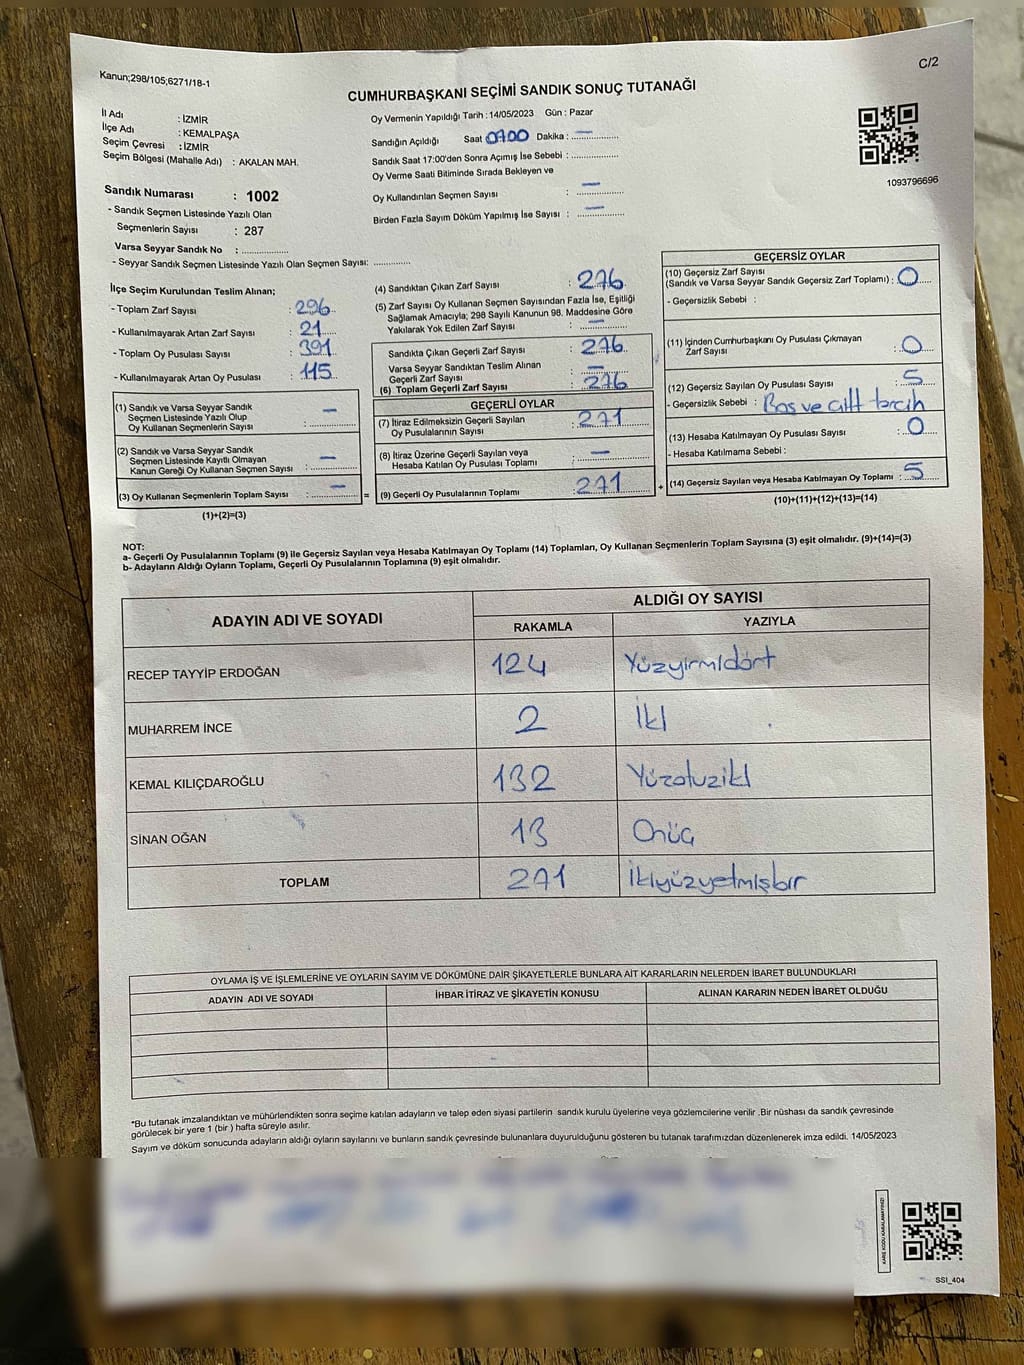 Kanun;298/105;6271/18-1
C/2
CUMHURBAŞKANI SEÇİMİ SANDIK SONUÇ TUTANAĞI
İl Adı : İZMİR
İlçe Adı : KEMALPAŞA
Seçim Çevresi : İZMİR
Seçim Bölgesi (Mahalle Adı) : AKALAN MAH.
Sandık Numarası : 1002
- Sandık Seçmen Listesinde Yazılı Olan
Seçmenlerin Sayısı : 287
Varsa Seyyar Sandık No : ..............
- Seyyar Sandık Seçmen Listesinde Yazılı Olan Seçmen Sayısı: ............
Oy Vermenin Yapıldığı Tarih : 14/05/2023 Gün : Pazar
Sandığın Açıldığı Saat 0700 Dakika : —
Sandık Saat 17:00'den Sonra Açımış İse Sebebi : ..............
Oy Verme Saati Bitiminde Sırada Bekleyen ve
Oy Kullandırılan Seçmen Sayısı : —
Birden Fazla Sayım Döküm Yapılmış İse Sayısı : —
1093796696
İlçe Seçim Kurulundan Teslim Alınan;
- Toplam Zarf Sayısı : 296
- Kullanılmayarak Artan Zarf Sayısı : 21
- Toplam Oy Pusulası Sayısı : 391
- Kullanılmayarak Artan Oy Pusulası : 115
(1) Sandık ve Varsa Seyyar Sandık
Seçmen Listesinde Yazılı Olup
Oy Kullanan Seçmenlerin Sayısı : —
(2) Sandık ve Varsa Seyyar Sandık
Seçmen Listesinde Kayıtlı Olmayan
Kanun Gereği Oy Kullanan Seçmen Sayısı : —
(3) Oy Kullanan Seçmenlerin Toplam Sayısı : — =
(1)+(2)=(3)
(4) Sandıktan Çıkan Zarf Sayısı : 276
(5) Zarf Sayısı Oy Kullanan Seçmen Sayısından Fazla İse, Eşitliği
Sağlamak Amacıyla; 298 Sayılı Kanunun 98. Maddesine Göre
Yakılarak Yok Edilen Zarf Sayısı : —
Sandıkta Çıkan Geçerli Zarf Sayısı : 276
Varsa Seyyar Sandıktan Teslim Alınan
Geçerli Zarf Sayısı : —
(6) Toplam Geçerli Zarf Sayısı : 276
GEÇERLİ OYLAR
(7) İtiraz Edilmeksizin Geçerli Sayılan
Oy Pusulalarının Sayısı : 271
(8) İtiraz Üzerine Geçerli Sayılan veya
Hesaba Katılan Oy Pusulası Toplamı : —
(9) Geçerli Oy Pusulalarının Toplamı : 271 +
GEÇERSİZ OYLAR
(10) Geçersiz Zarf Sayısı
(Sandık ve Varsa Seyyar Sandık Geçersiz Zarf Toplamı) : 0
- Geçersizlik Sebebi :
(11) İçinden Cumhurbaşkanı Oy Pusulası Çıkmayan
Zarf Sayısı : 0
(12) Geçersiz Sayılan Oy Pusulası Sayısı : 5
- Geçersizlik Sebebi : Boş ve çift tercih
(13) Hesaba Katılmayan Oy Pusulası Sayısı : 0
- Hesaba Katılmama Sebebi :
(14) Geçersiz Sayılan veya Hesaba Katılmayan Oy Toplamı : 5
(10)+(11)+(12)+(13)=(14)
NOT:
a- Geçerli Oy Pusulalarının Toplamı (9) ile Geçersiz Sayılan veya Hesaba Katılmayan Oy Toplamı (14) Toplamları, Oy Kullanan Seçmenlerin Toplam Sayısına (3) eşit olmalıdır. (9)+(14)=(3)
b- Adayların Aldığı Oyların Toplamı, Geçerli Oy Pusulalarının Toplamına (9) eşit olmalıdır.
ADAYIN ADI VE SOYADI
ALDIĞI OY SAYISI
RAKAMLA YAZIYLA
RECEP TAYYİP ERDOĞAN 124 Yüzyirmidört
MUHARREM İNCE 2 İki
KEMAL KILIÇDAROĞLU 132 Yüzotuziki
SİNAN OĞAN 13 Onüç
TOPLAM 271 İkiyüzyetmişbir
OYLAMA İŞ VE İŞLEMLERİNE VE OYLARIN SAYIM VE DÖKÜMÜNE DAİR ŞİKAYETLERLE BUNLARA AİT KARARLARIN NELERDEN İBARET BULUNDUKLARI
ADAYIN ADI VE SOYADI İHBAR İTİRAZ VE ŞİKAYETİN KONUSU ALINAN KARARIN NEDEN İBARET OLDUĞU
*Bu tutanak imzalandıktan ve mühürlendikten sonra seçime katılan adayların ve talep eden siyasi partilerin sandık kurulu üyelerine veya gözlemcilerine verilir .Bir nüshası da sandık çevresinde
görülecek bir yere 1 (bir ) hafta süreyle asılır.
Sayım ve döküm sonucunda adayların aldığı oyların sayılarını ve bunların sandık çevresinde bulunanlara duyurulduğunu gösteren bu tutanak tarafımızdan düzenlenerek imza edildi. 14/05/2023
KARE KODU KARALAMAYINIZ!
SSI_404